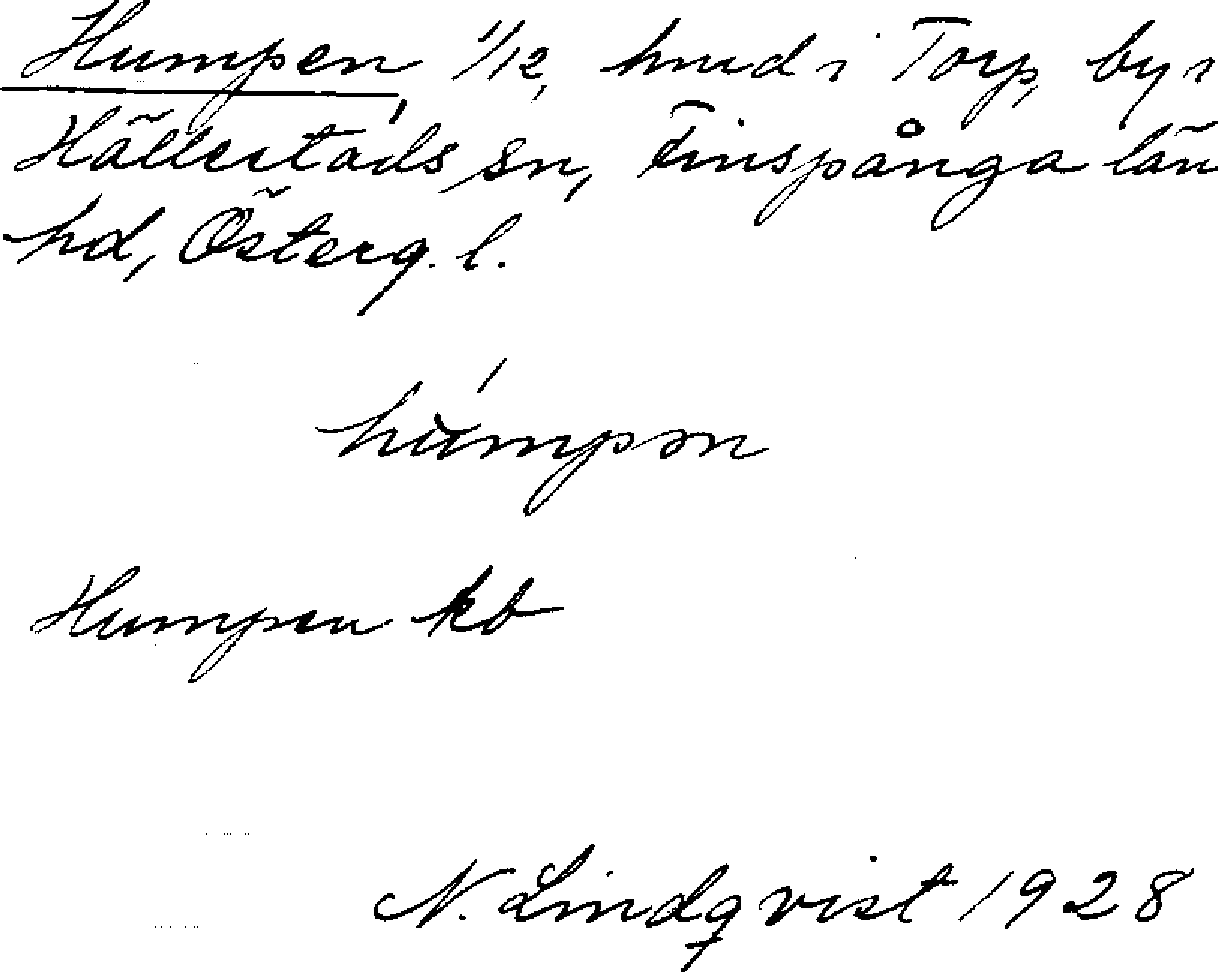 Humpen, 1/12, hmd i Torp, by i
Hällestads sn, Finspånga län
hd, Österg. l.
húmpən
Humpen kb
N. Lindqvist 1928